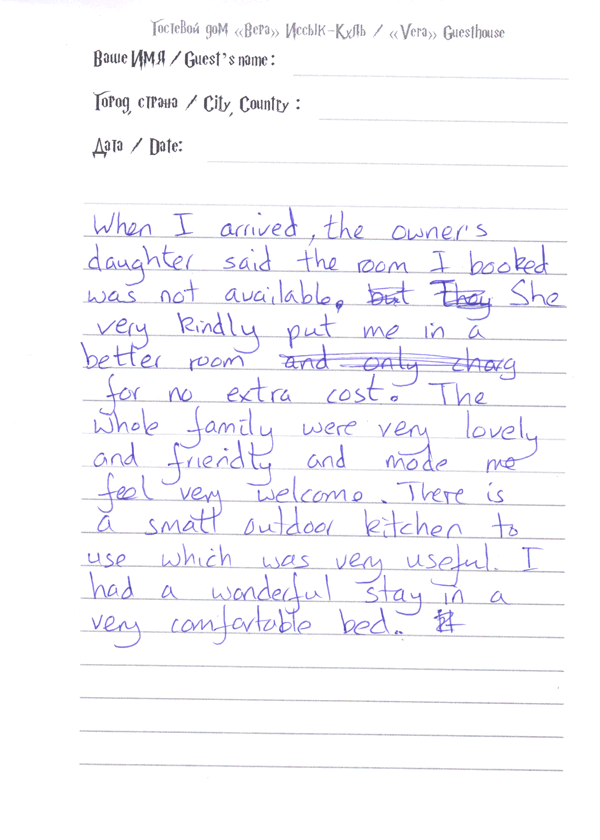 Гостевой дом «Вера» Иссык-Куль / «Vera» Guesthouse
Ваше ИМЯ / Guest's name :
Город, страна / City, Country :
Дата / Date:
When I arrived, the owner's
daughter said the room I booked
was not available. but They She
very kindly put me in a
better room and only charg
for no extra cost. The
whole family were very lovely
and friendly and made me
feel very welcome. There is
a small outdoor kitchen to
use which was very useful. I
had a wonderful stay in a
very comfortable bed.